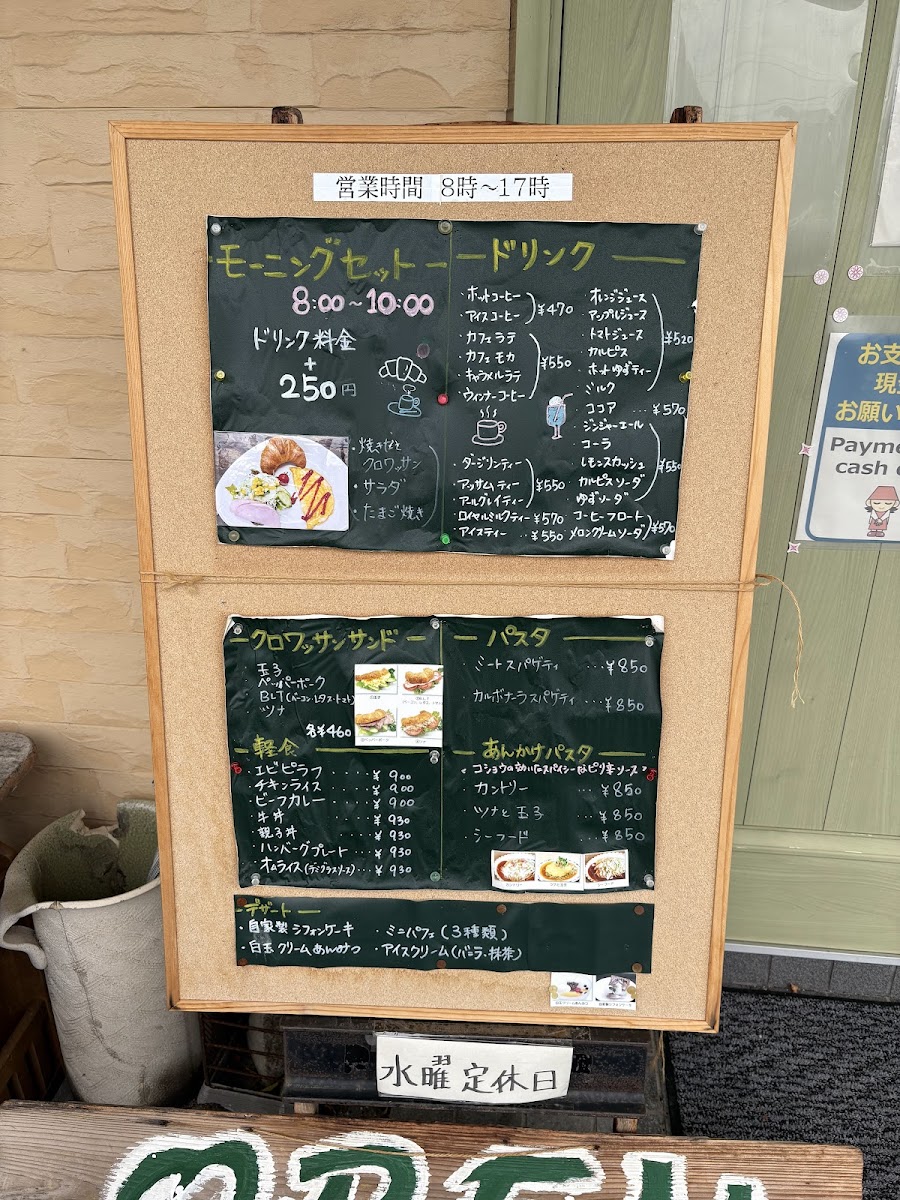 営業時間 8時～17時
モーニングセット
8:00～10:00
ドリンク料金
+
250円
・焼きたて
クロワッサン
・サラダ
・たまご焼き
ドリンク
・ホットコーヒー
・アイスコーヒー
¥470
・カフェラテ
・カフェモカ
・キャラメルラテ
・ウィンナーコーヒー
¥550
・ダージリンティー
・アッサムティー
・アールグレイティー
¥550
・ロイヤルミルクティー…¥570
・アイスティー …¥550
・オレンジジュース
・アップルジュース
・トマトジュース
・カルピス
・ホットゆずティー
・ミルク
¥520
・ココア …¥570
・ジンジャーエール
・コーラ
・レモンスカッシュ
・カルピスソーダ
・ゆずソーダ
¥550
・コーヒーフロート
・メロンクリームソーダ
¥570
クロワッサンサンド
・玉子
・ペッパーポーク
・BLT(ベーコン・レタス・トマト)
・ツナ
各¥460
軽食
・エビピラフ ・・・・¥900
・チキンライス ・・・・¥900
・ビーフカレー ・・・・¥900
・牛丼 ・・・・¥930
・親子丼 ・・・・¥930
・ハンバーグプレート ・・・¥930
・オムライス(デミグラスソース)・・・¥930
パスタ
・ミートスパゲティ …¥850
・カルボナーラスパゲティ …¥850
あんかけパスタ
"コショウの効いたスパイシーなピリ辛ソース"
・カントリー …¥850
・ツナと玉子 …¥850
・シーフード …¥850
デザート
・自家製シフォンケーキ ・ミニパフェ(3種類)
・白玉クリームあんみつ ・アイスクリーム(バニラ・抹茶)
水曜定休日
お支
現
お願い
Payme
cash o
OPEN